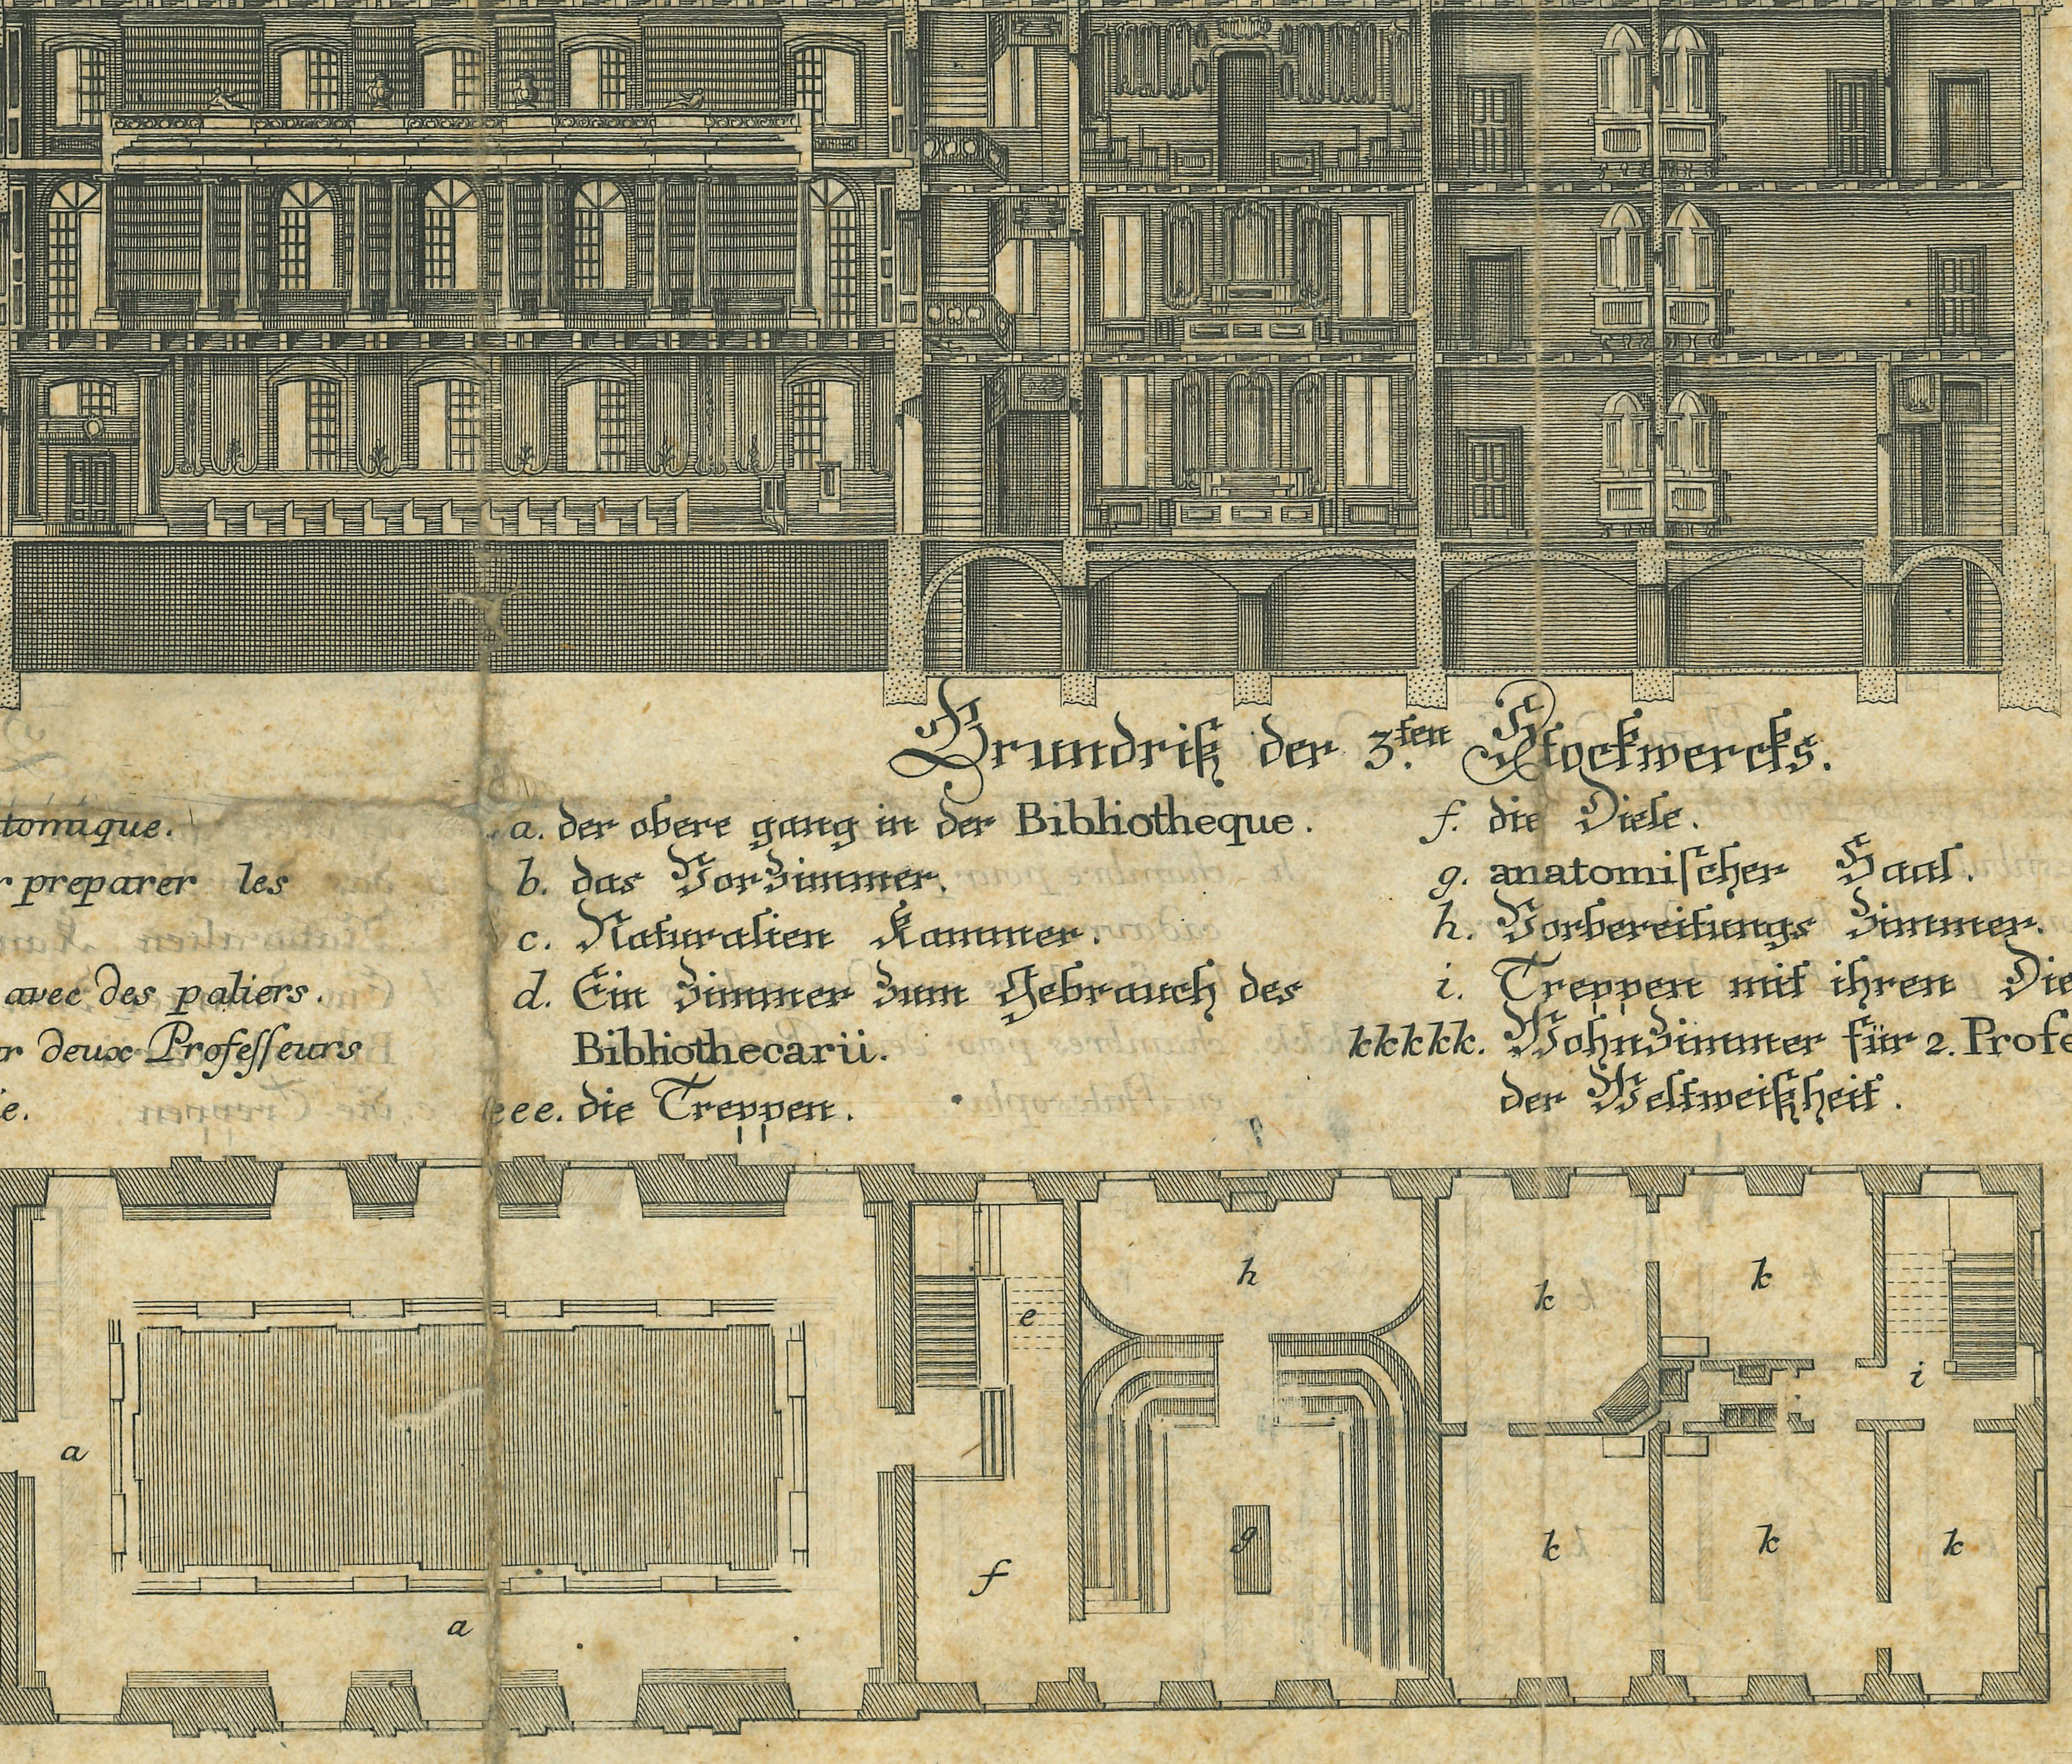 Grundriß der 3.ten Stockwercks.
tomique.
r preparer les
avec des paliers.
r deux Professeurs
ie.
a. der obere gang in der Bibliotheque.
b. das VorZimmer.
c. Naturalien Kammer.
d. Ein Zimmer Zum Gebrauch des
Bibliothecarii.
eee. die Treppen.
f. die Diele.
g. anatomischer Saal.
h. Vorbereitungs Zimmer.
i. Treppen mit ihren Die
kkkkk. WohnZimmer für 2. Profe
der Weltweißheit.
h
k
k
e
i
a
g
k
k
k
f
a